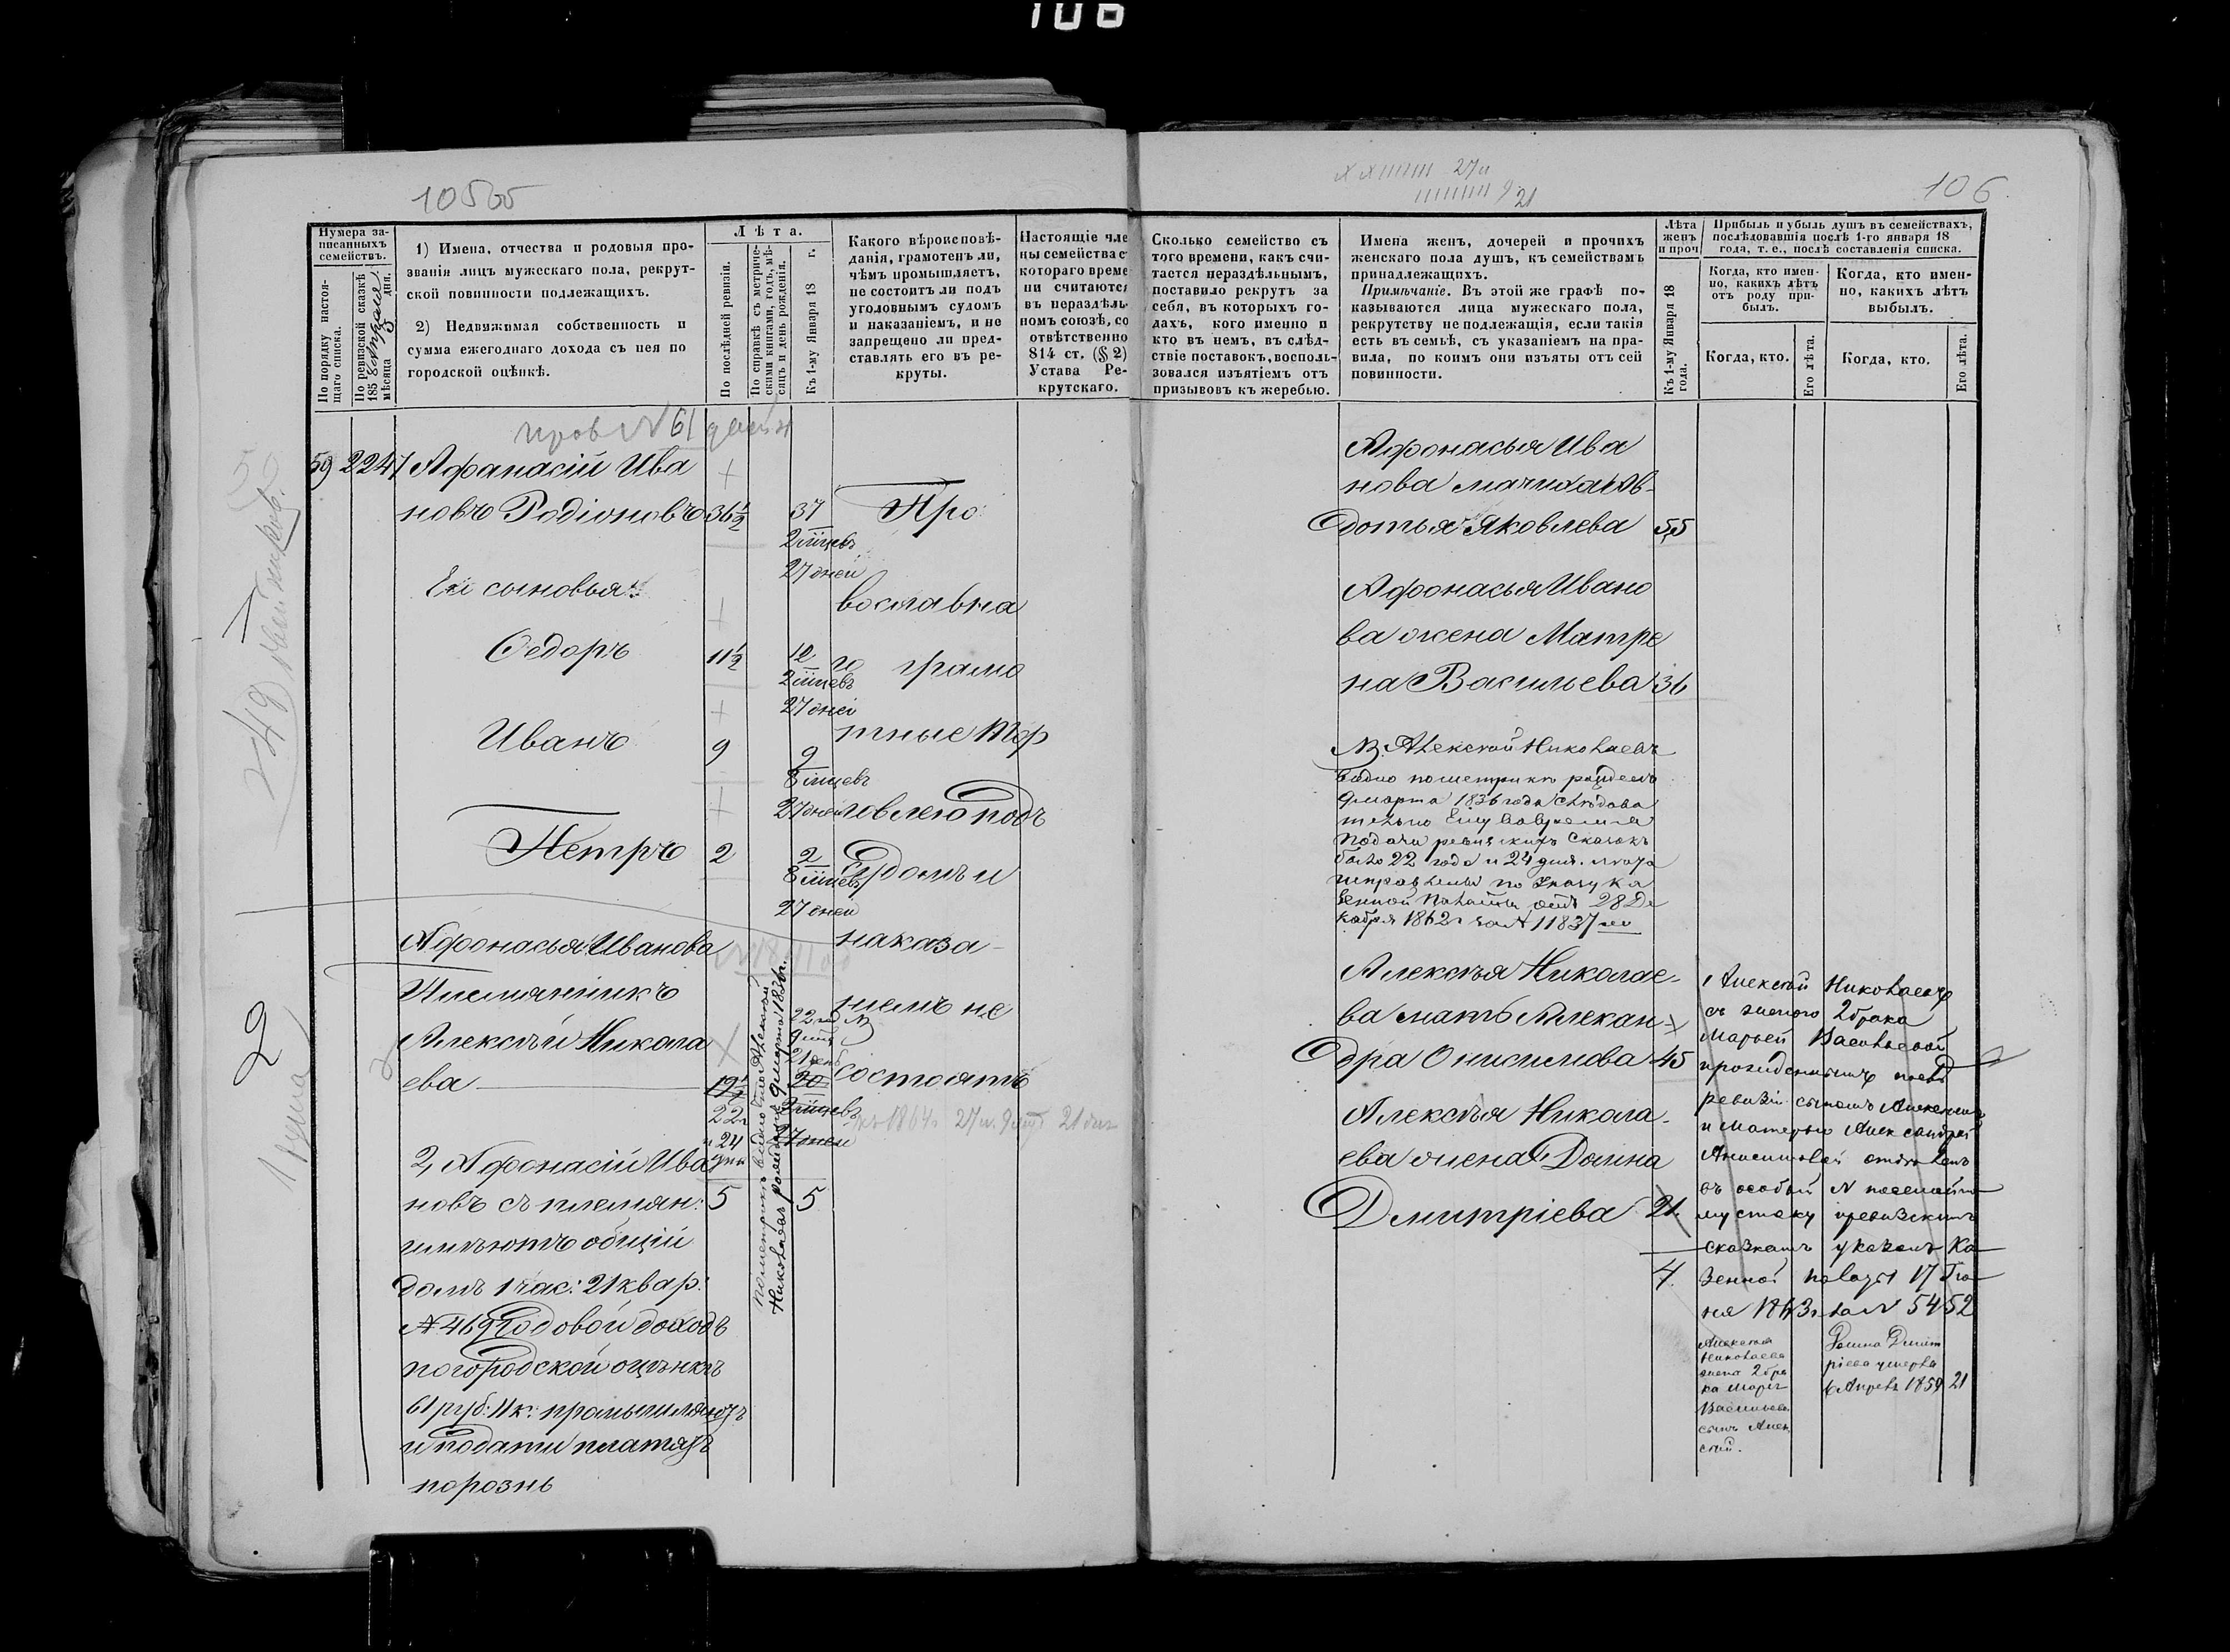 106
10505
Нумера за-
писанныхъ
семействъ.
По порядку настоя-
щаго списка.
По ревизской сказкѣ
185 8 Апреля
мѣсяца 5 дня.
1) Имена, отчества и родовыя про-
званія лицъ мужескаго пола, рекрут-
ской повинности подлежащихъ.
2) Недвижимая собственность и
сумма ежегоднаго дохода съ нея по
городской оцѣнкѣ.
Лѣта.
По послѣдней ревизіи.
По справкѣ съ метриче-
скими книгами, годъ, мѣ-
сяцъ и день рожденія.
Къ 1-му Января 18 г.
Какого вѣроисповѣ-
данія, грамотенъ ли,
чѣмъ промышляетъ,
не состоитъ ли подъ
уголовнымъ судомъ
и наказаніемъ, и не
запрещено ли пред-
ставлять его въ ре-
круты.
Настоящіе чле
ны семейства с
котораго време
ни считаются
въ нераздѣль-
номъ союзѣ, со
отвѣтственно
814 ст. (§ 2)
Устава Ре-
крутскаго.
59 2247 Афанасій Ива
новъ Родіоновъ 36½ 37
2 мцевъ
27 дней
Его сыновья:
Ѳедоръ 11½ 12
2 мцевъ
27 дней
Иванъ 9 9
8 мцевъ
27 дней
Петръ 2 2
8 мцевъ
27 дней
Афонасья Иванова
Племянникъ
Алексѣй Никола
ева 19½ 20
22 г
и 24
дни
2 мцевъ
27 дней
Про
вославна
го грамо
тные тор
говлею подъ
судомъ и
наказа-
ніемъ не
состоятъ
2, Афонасій Ива
новъ съ племян: 5 5
имѣютъ общій
домъ 1 час: 21 квар:
№ 469 Годовой доходъ
по городской оцѣнкѣ
61 руб: 11 к: промышляютъ
и подати платятъ
порознь
по метрикѣ видно что Алексѣй
Николаевъ родился 9 марта 1836 г.
къ 1864 г 27 л. 9 мц 21 дня
2
1 душа
27 л
21
106
Сколько семейство съ
того времени, какъ счи-
тается нераздѣльнымъ,
поставило рекрутъ за
себя, въ которыхъ го-
дахъ, кого именно и
кто въ немъ, въ слѣд-
ствіе поставокъ, восполь-
зовался изъятіемъ отъ
призывовъ къ жеребью.
Имена женъ, дочерей и прочихъ
женскаго пола душъ, къ семействамъ
принадлежащихъ.
Примѣчаніе. Въ этой же графѣ по-
казываются лица мужескаго пола,
рекрутству не подлежащія, если такія
есть въ семьѣ, съ указаніемъ на пра-
вила, по коимъ они изъяты отъ сей
повинности.
Лѣта
женъ
и проч
Къ 1-му Января 18
года.
Прибыль и убыль душъ въ семействахъ,
послѣдовавшія послѣ 1-го января 18
года, т. е., послѣ составленія списка.
Когда, кто имен-
но, какихъ лѣтъ
отъ роду при-
былъ.
Когда, кто имен-
но, какихъ лѣтъ
выбылъ.
Когда, кто.
Его лѣта.
Когда, кто.
Его лѣта.
Афонасья Ива
нова мачиха Ов-
дотья Яковлева 55
Афонасья Ивано
ва жена Матре
на Васильева 36
NB. Алексѣй Николаевъ
видно по метрикѣ рожденъ
9 марта 1836 года слѣдова
тельно ему во время
подачи ревизскихъ сказокъ
было 22 года и 24 дня. лѣта
исправлены по указу Ка
зенной Палаты отъ 28 Де
кабря 1862 г за № 11837 мъ
Алексѣя Николае-
ва мать Алекан-
дра Онисимова 45
Алексѣя Никола-
ева жена Домна
Дмитріева 21.
4.
Алексѣй Николаевъ
съ женою 2 брака
Марьей Васильевой
прожиденнымъ послѣ
ревизіи сыномъ Алексѣемъ
и матерью Александрой
Анисимовой отдѣленъ
въ особый № посемейно
му списку и ревизскимъ
сказкамъ указомъ Ка
зенной палаты 17 Iю
ня 1863 г. за № 5452
Алексѣя
Николаева
жена 2 бра
ка Марья
Васильева
сынъ Алек
сѣй.
Домна Дмит
ріева умерла
6 Апрѣля 1859 21